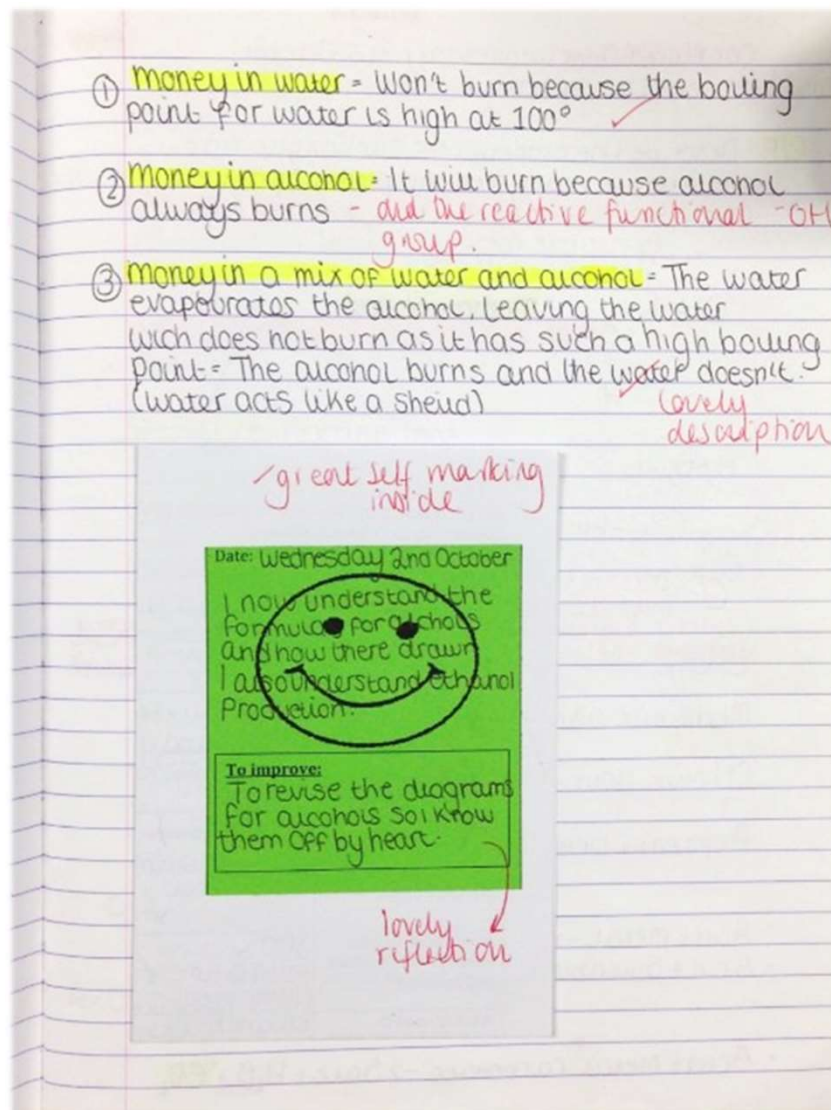 ① Money in water = Won't burn because the boiling
point for water is high at 100°
② Money in alcohol = It will burn because alcohol
always burns - and the reactive functional -OH
group.
③ Money in a mix of water and alcohol = The water
evapourates the alcohol. Leaving the water
wich does not burn as it has such a high boiling
point = The alcohol burns and the water doesn't.
(water acts like a sheild)
lovely
description
great self marking
inside
Date: Wednesday 2nd October
I now understand the
formulas for alchols
and how there drawn
I also understand ethanol
Production.
To improve:
To revise the diagrams
for alcohols so i know
them off by heart.
lovely
reflection